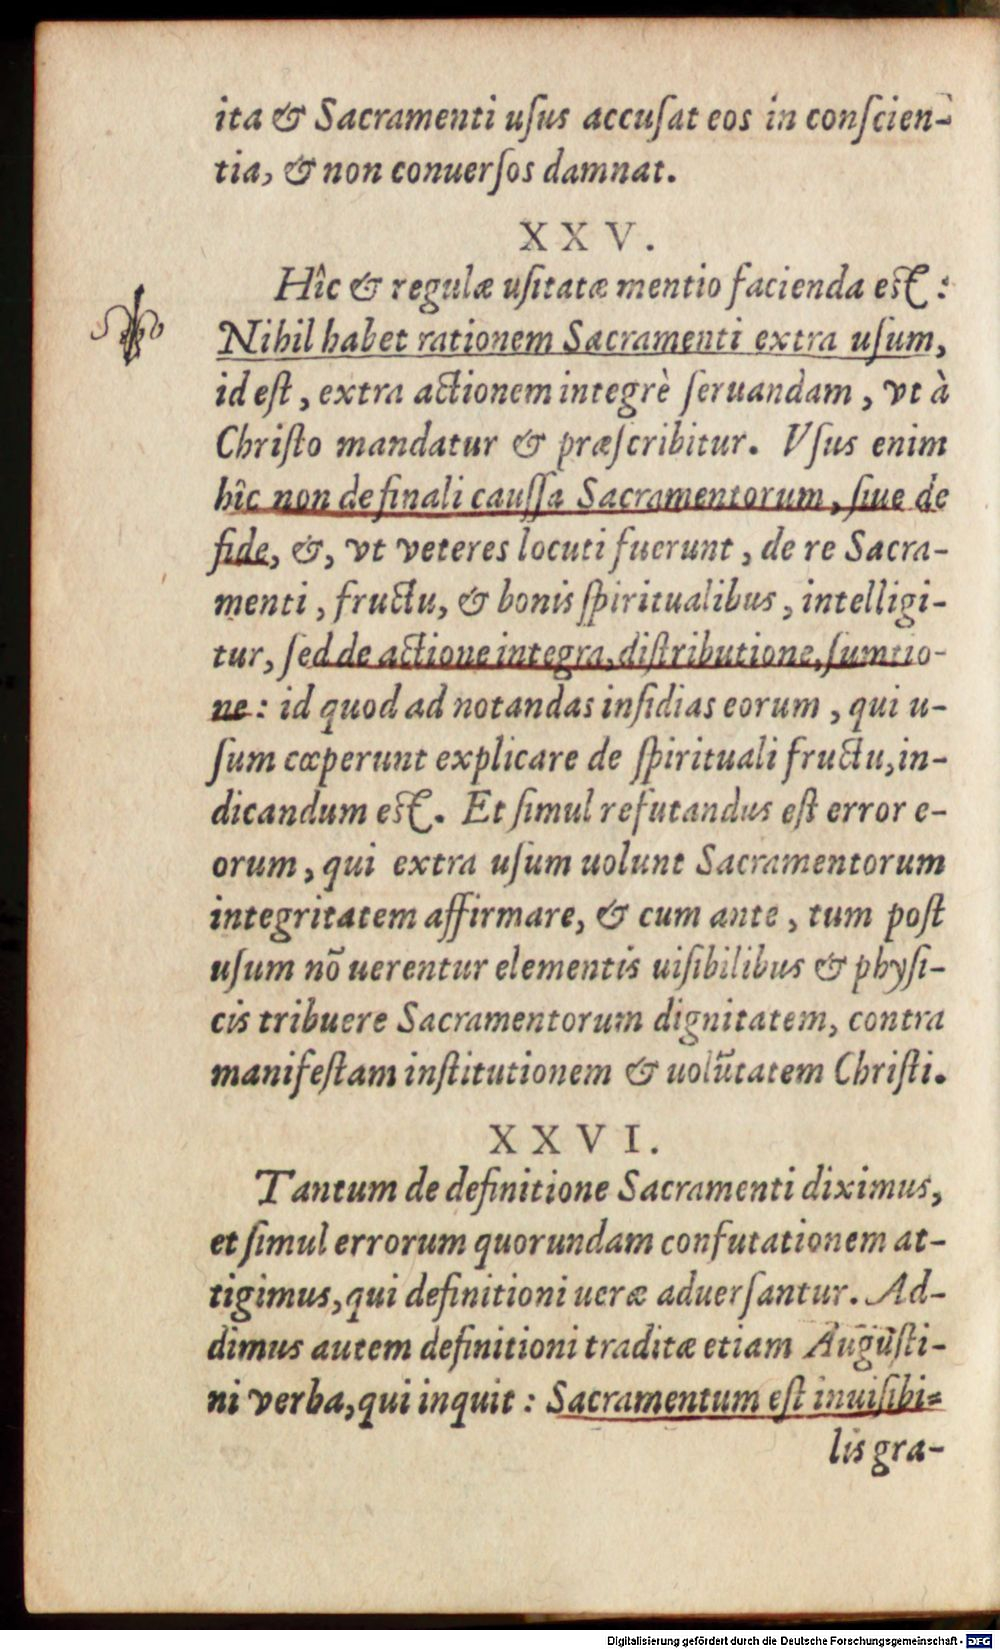 ita & Sacramenti uſus accuſat eos in conſcien-
tia, & non conuerſos damnat.
XXV.
Hîc & regulæ uſitatæ mentio facienda eſt:
Nihil habet rationem Sacramenti extra uſum,
id eſt, extra actionem integrè ſeruandam, vt à
Chriſto mandatur & præſcribitur. Vſus enim
hîc non de finali cauſſa Sacramentorum, ſiue de
fide, &, vt veteres locuti fuerunt, de re Sacra-
menti, fructu, & bonis ſpiritualibus, intelligi-
tur, ſed de actione integra, diſtributione, ſumtio-
ne: id quod ad notandas inſidias eorum, qui u-
ſum cœperunt explicare de ſpirituali fructu, in-
dicandum eſt. Et ſimul refutandus eſt error e-
orum, qui extra uſum uolunt Sacramentorum
integritatem affirmare, & cum ante, tum poſt
uſum nõ uerentur elementis uiſibilibus & phyſi-
cis tribuere Sacramentorum dignitatem, contra
manifeſtam inſtitutionem & uolũtatem Chriſti.
XXVI.
Tantum de definitione Sacramenti diximus,
et ſimul errorum quorundam confutationem at-
tigimus, qui definitioni ueræ aduerſantur. Ad-
dimus autem definitioni traditæ etiam Auguſti-
ni verba, qui inquit: Sacramentum eſt inuiſibi-
lis gra-
Digitalisierung gefördert durch die Deutsche Forschungsgemeinschaft - DFG